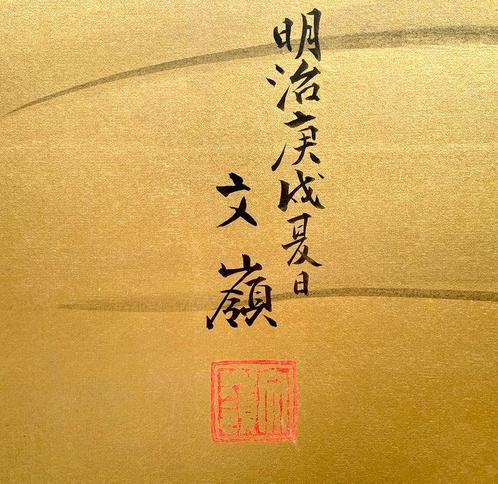 明治庚戌夏日
文嶺
文嶺